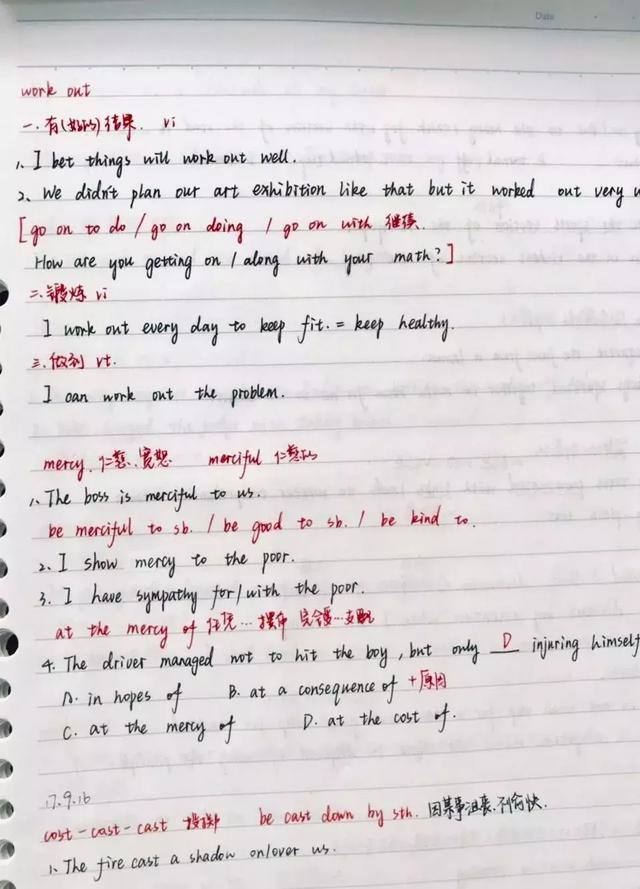 Date
work out
一.有(好的)结果. vi
1、I bet things will work out well.
2、We didn't plan our art exhibition like that but it worked out very
[go on to do / go on doing / go on with 继续.
How are you getting on / along with your math?]
二.锻炼 vi
I work out every day to keep fit. = keep healthy.
三.做到 vt.
I can work out the problem.
mercy. 仁慈.宽恕 merciful 仁慈的
1、The boss is merciful to us.
be merciful to sb. / be good to sb. / be kind to.
2、I show mercy to the poor.
3. I have sympathy for/with the poor.
at the mercy of 任凭…摆布 完全受…支配
4. The driver managed not to hit the boy, but only D injuring himself
A. in hopes of B. at a consequence of +原因
C. at the mercy of D. at the cost of.
17.9.16
cost-cast-cast 投掷 be cast down by sth. 因某事沮丧.不愉快.
1、The fire cast a shadow on/over us.